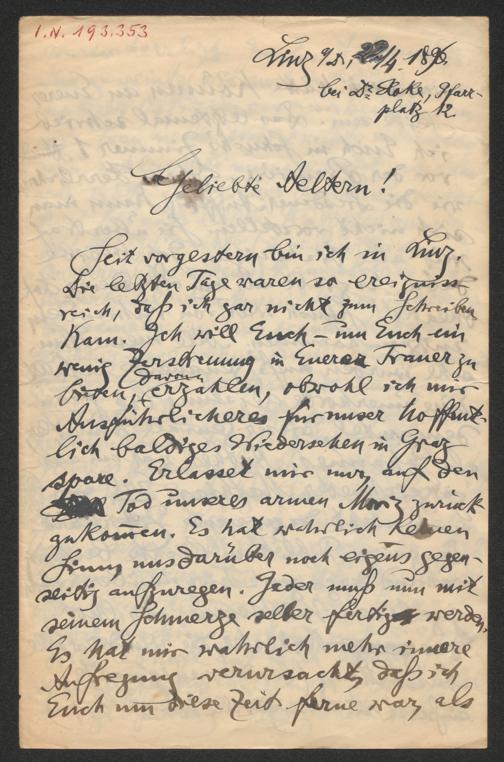 I.N. 193.353
Linz a/D, 22/4. 1896.
bei Dr Koke, Pfarr-
platz 12
Geliebte Aeltern!
Seit vorgestern bin ich in Linz.
Die letzten Tage waren so ereigniss-
reich, daß ich gar nicht zum Schreiben
kam. Ich will Euch – um Euch ein
wenig Zerstreuung in Euerer Trauer zu
bieten, davon erzählen, obwohl ich mir
Ausführlicheres für unser hoffent-
lich baldiges Wiedersehen in Graz
spare. Erlasset mir nur, auf den
Tod unseres armen Moriz zurück
zukommen. Es hat wahrlich keinen
Sinn, uns darüber noch eigens gegen-
seitig aufzuregen. Jeder muß nun mit
seinem Schmerze selber fertig werden.
Es hat mir wahrlich mehr innere
Aufregung verursacht, daß ich
Euch um diese Zeit ferne war, als